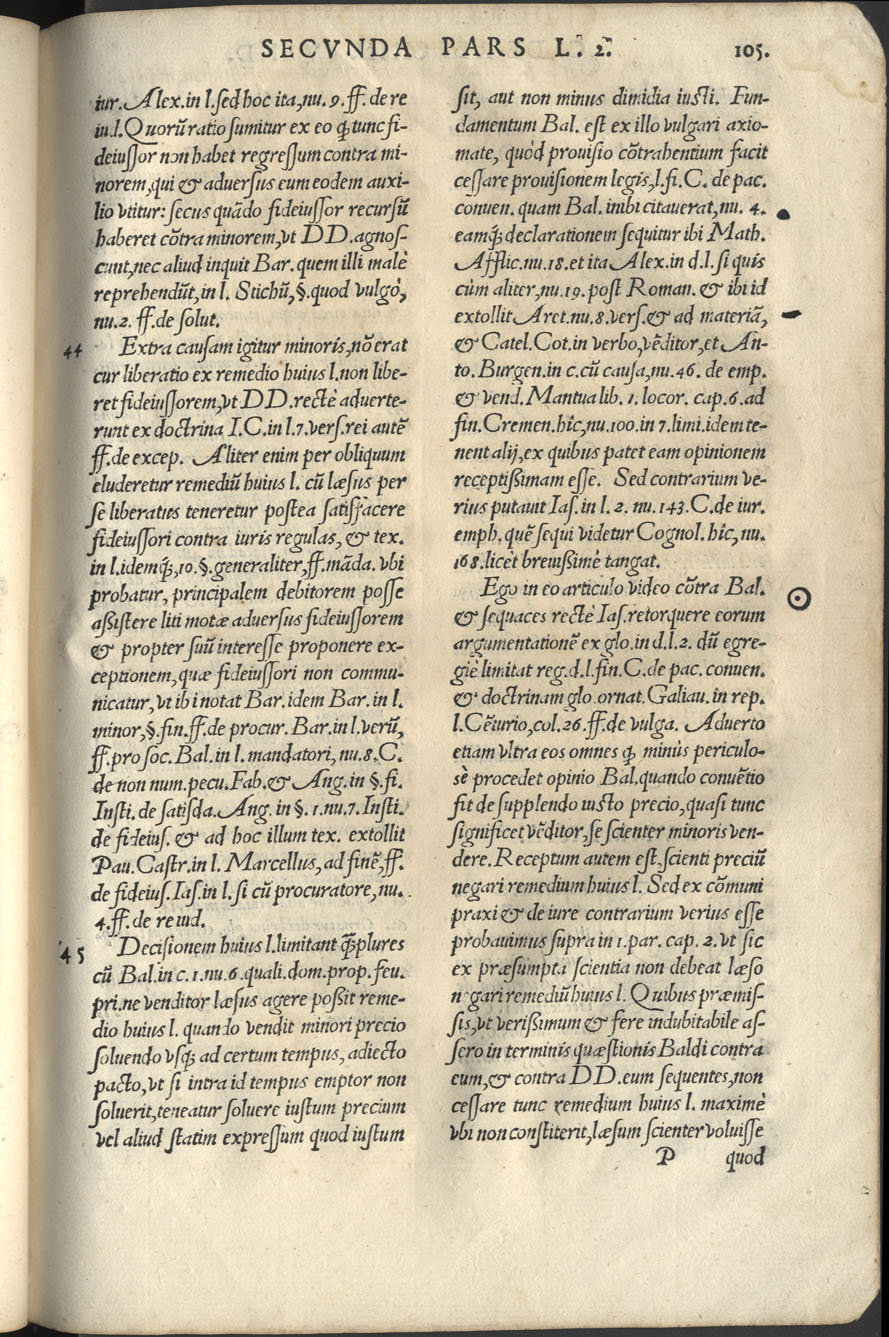 SECVNDA PARS L. 2. 105.
iur. Alex. in l. sed hoc ita, nu. 9. ff. de re
iu.l. Quorũ ratio sumitur ex eo ꝙ tunc fi-
deiussor non habet regressum contra mi-
norem, qui & aduersus eum eodem auxi-
lio vtitur: secus quãdo fideiussor recursũ
haberet cõtra minorem, vt DD. agnos-
cunt, nec aliud inquit Bar. quem illi malè
reprehendũt, in l. Stichũ, §. quod vulgò,
nu. 2. ff. de solut.
44 Extra causam igitur minoris, nõ erat
cur liberatio ex remedio huius l. non libe-
ret fideiussorem, vt DD. rectè aduerte-
runt ex doctrina I.C. in l. 7. vers. rei autẽ
ff. de excep. Aliter enim per obliquum
eluderetur remediũ huius l. cũ læsus per
se liberatus teneretur postea satisfacere
fideiussori contra iuris regulas, & tex.
in l. idemq;, 10. §. generaliter, ff. mãda. vbi
probatur, principalem debitorem posse
assistere liti motæ aduersus fideiussorem
& propter suũ interesse proponere ex-
ceptionem, quæ fideiussori non commu-
nicatur, vt ibi notat Bar. idem Bar. in l.
minor, §. fin. ff. de procur. Bar. in l. verũ,
ff. pro soc. Bal. in l. mandatori, nu. 8. C.
de non num. pecu. Fab. & Ang. in §. fi.
Insti. de satisda. Ang. in §. 1. nu. 7. Insti.
de fideius. & ad hoc illum tex. extollit
Pau. Castr. in l. Marcellus, ad finẽ, ff.
de fideius. Ias. in l. si cũ procuratore, nu.
4. ff. de re iud.
45 Decisionem huius l. limitant q̃plures
cũ Bal. in c. 1. nu. 6. quali. dom. prop. feu.
pri. ne venditor læsus agere possit reme-
dio huius l. quando vendit minori precio
soluendo vsq; ad certum tempus, adiecto
pacto, vt si intra id tempus emptor non
soluerit, teneatur soluere iustum precium
vel aliud statim expressum quod iustum
sit, aut non minus dimidia iusti. Fun-
damentum Bal. est ex illo vulgari axio-
mate, quòd prouisio cõtrahentium facit
cessare prouisionem legis, l. fi. C. de pac.
conuen. quam Bal. inibi citauerat, nu. 4.
eamq; declarationem sequitur ibi Math.
Afflic. nu. 18. et ita Alex. in d. l. si quis
cùm aliter, nu. 19. post Roman. & ibi id
extollit Aret. nu. 8. vers. & ad materiã,
& Catel. Cot. in verbo, vẽditor, et An-
to. Burgen. in c. cũ causa, nu. 46. de emp.
& vend. Mantua lib. 1. locor. cap. 6. ad
fin. Cremen. hîc, nu. 100. in 7. limi. idem te-
nent alij, ex quibus patet eam opinionem
receptissimam esse. Sed contrarium ve-
rius putauit Ias. in l. 2. nu. 143. C. de iur.
emph. quẽ sequi videtur Cognol. hîc, nu.
168. licèt breuissimè tangat.
Ego in eo articulo video cõtra Bal.
& sequaces rectè Ias. retorquere eorum
argumentationẽ ex glo. in d. l. 2. dũ egre-
giè limitat reg. d. l. fin. C. de pac. conuen.
& doctrinam glo. ornat. Galiau. in rep.
l. Cẽturio, col. 26. ff. de vulga. Aduerto
etiam vltra eos omnes ꝙ minùs periculo-
sè procedet opinio Bal. quando conuẽtio
fit de supplendo iusto precio, quasi tunc
significet vẽditor, se scienter minoris ven-
dere. Receptum autem est, scienti preciũ
negari remedium huius l. Sed ex cõmuni
praxi & de iure contrarium verius esse
probauimus supra in 1. par. cap. 2. vt sic
ex præsumpta scientia non debeat læso
negari remediũ huius l. Quibus præmis-
sis, vt verissimum & fere indubitabile as-
sero in terminis quæstionis Baldi contra
eum, & contra DD. eum sequentes, non
cessare tunc remedium huius l. maximè
vbi non constiterit, læsum scienter voluisse
P quod